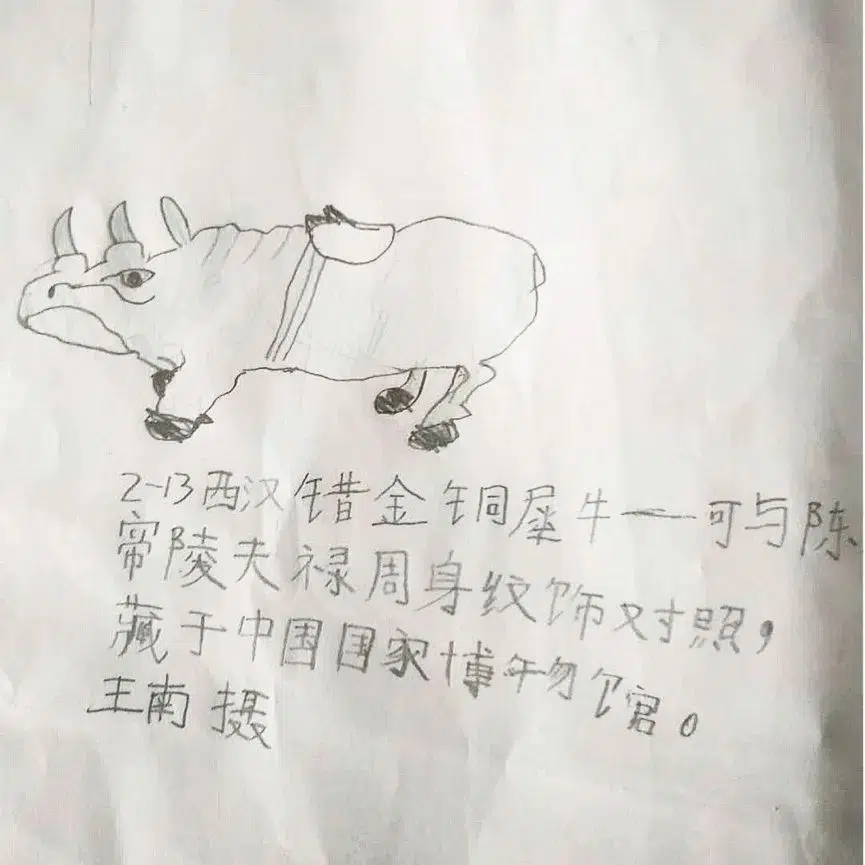 2-13西汉错金铜犀牛——可与陈
帝陵夫禄周身纹饰对照，
藏于中国国家博物馆。
王南 摄